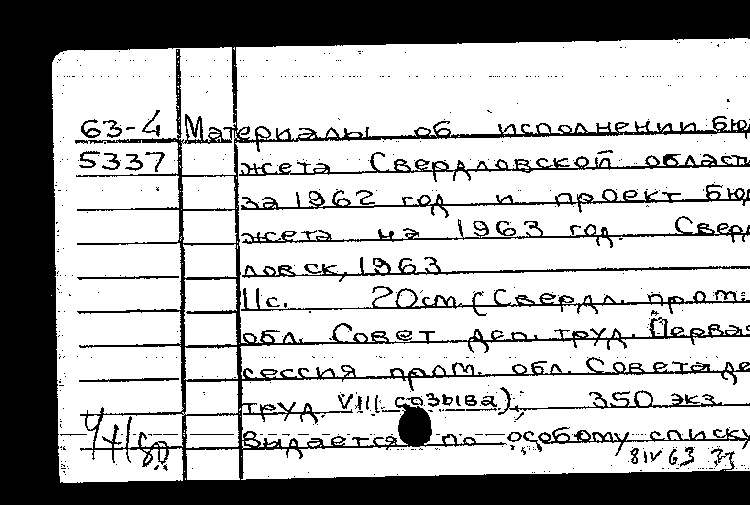 63-4 Материалы об исполнении бюд
5337 жета Свердловской области
за 1962 год и проект бюд
жета на 1963 год. Сверд
ловск, 1963
11с. 20см. (Свердл. пром.
обл. Совет деп. труд. Первая
сессия пром. обл. Совета де
труд. VIII созыва). 350 экз.
Выдается по особому списку
8IV63